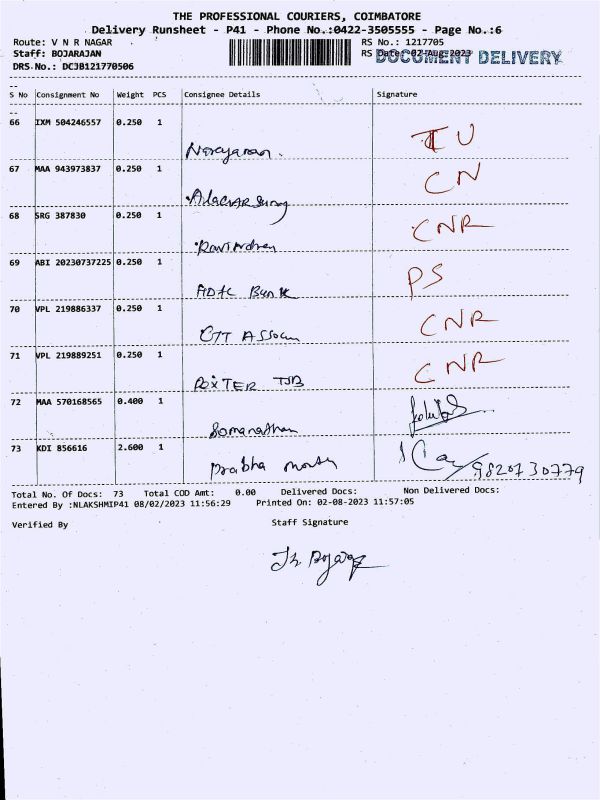 THE PROFESSIONAL COURIERS, COIMBATORE
Delivery Runsheet - P41 - Phone No.:0422-3505555 - Page No.:6
Route: V N R NAGAR RS No.: 1217705
Staff: BOJARAJAN RS Date: 02-Aug-2023 DOCUMENT DELIVERY
DRS No.: DCJB121770506
S No Consignment No Weight PCS Consignee Details Signature
66 IXM 504246557 0.250 1
Narayanan. IU
67 MAA 943973837 0.250 1
CN
68 SRG 387830 0.250 1
CNR
69 ABI 20230737225 0.250 1
Bank PS
70 VPL 219886337 0.250 1
OTT Assocn CNR
71 VPL 219889251 0.250 1
CNR
72 MAA 570168565 0.400 1
Somanathan
73 KDI 856616 2.600 1
Prabha 9820730779
Total No. Of Docs: 73 Total COD Amt: 0.00 Delivered Docs: Non Delivered Docs:
Entered By :NLAKSHMIP41 08/02/2023 11:56:29 Printed On: 02-08-2023 11:57:05
Verified By Staff Signature